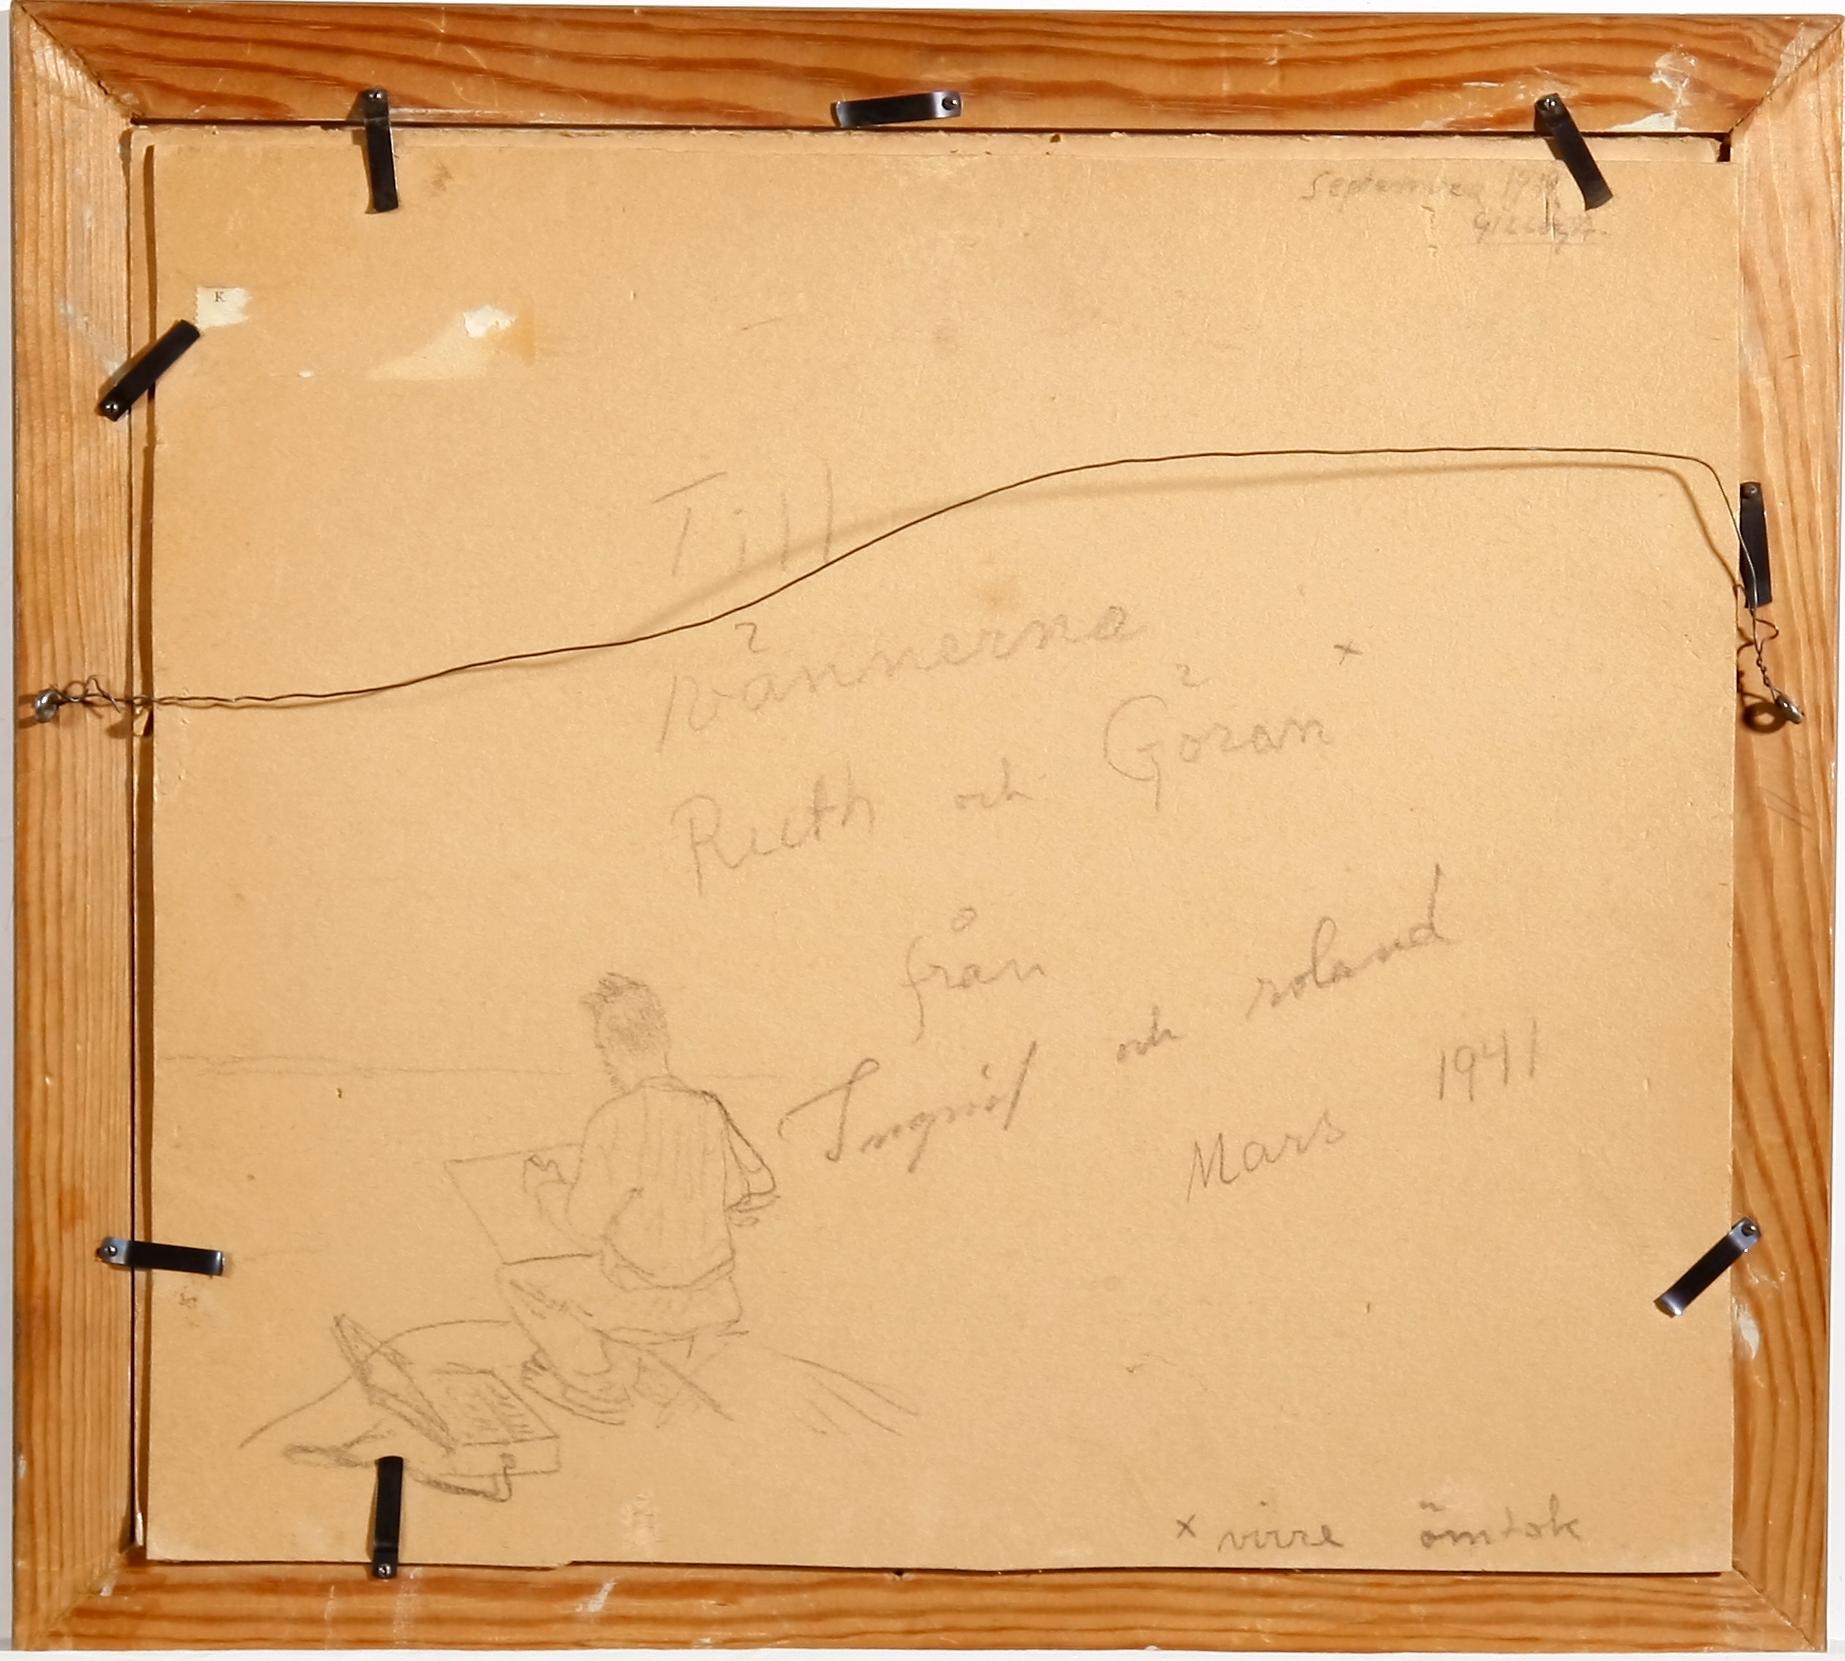 September
K
Till
vännerna
Ruth och Göran x
från
Ingrid och roland
Mars 1941
x virre